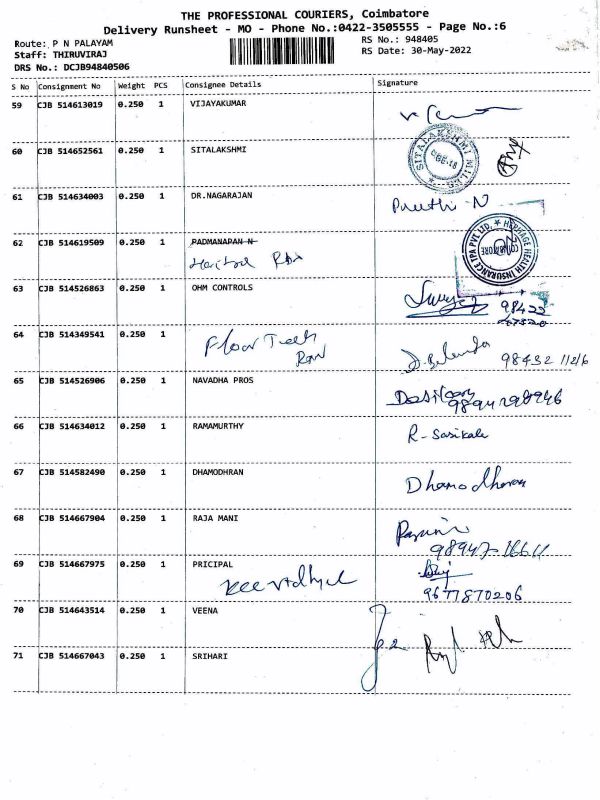 THE PROFESSIONAL COURIERS, Coimbatore
Delivery Runsheet - MO - Phone No.:0422-3505555 - Page No.:6
Route: P N PALAYAM RS No.: 948405
Staff: THIRUVIRAJ RS Date: 30-May-2022
DRS No.: DCJB94840506
S No Consignment No Weight PCS Consignee Details Signature
59 CJB 514613019 0.250 1 VIJAYAKUMAR
60 CJB 514652561 0.250 1 SITALAKSHMI SITALAKSHMI MILLS
61 CJB 514634003 0.250 1 DR.NAGARAJAN Preethi-N
62 CJB 514619509 0.250 1 PADMANAPAN N HERITAGE HEALTH INSURANCE TPA PVT LTD.
63 CJB 514526863 0.250 1 OHM CONTROLS
64 CJB 514349541 1 Floor Tech 98432 112/6
65 CJB 514526906 0.250 1 NAVADHA PROS
66 CJB 514634012 0.250 1 RAMAMURTHY R-Sasikala
67 CJB 514582490 0.250 1 DHAMODHRAN Dhamodharan
68 CJB 514667904 0.250 1 RAJA MANI
69 CJB 514667975 0.250 1 PRICIPAL
9677870206
70 CJB 514643514 0.250 1 VEENA
71 CJB 514667043 0.250 1 SRIHARI